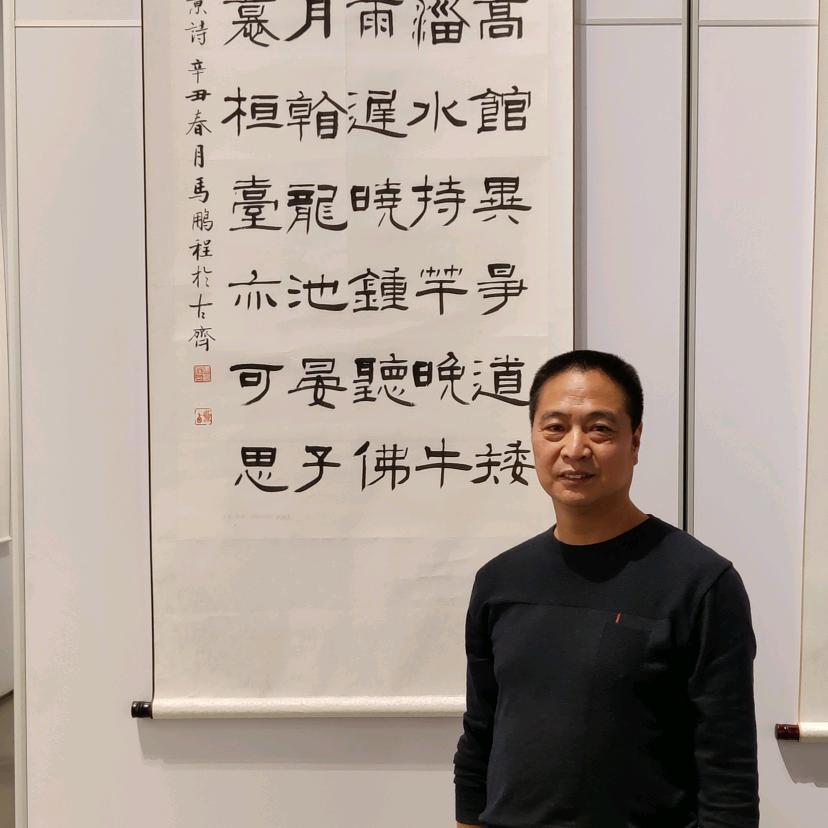 高館異爭道矮
淄水持竿晚牛
雨遲曉鍾聽佛
月翰龍池晏子
桓臺亦可思
景詩 辛丑春月馬鵬程於古齊